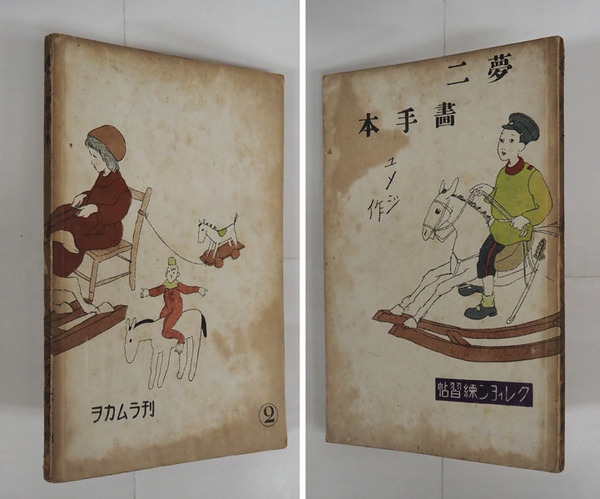 ヲカムラ刊
2
夢二
畫手本
ユメジ
作
クレイヨン練習帖